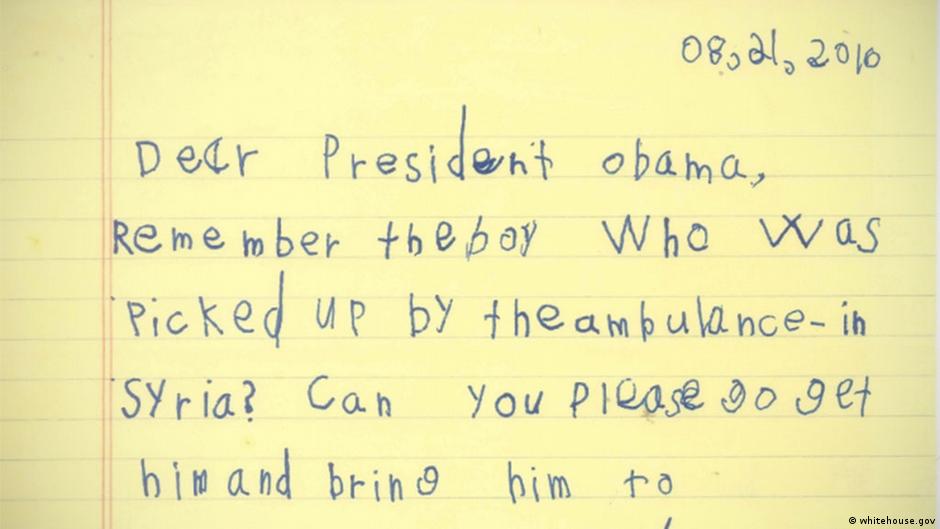 08,21,2010
Dear President obama,
Remember the boy Who Was
picked up by the ambulance-in
Syria? Can you please go get
him and bring him to
© whitehouse.gov